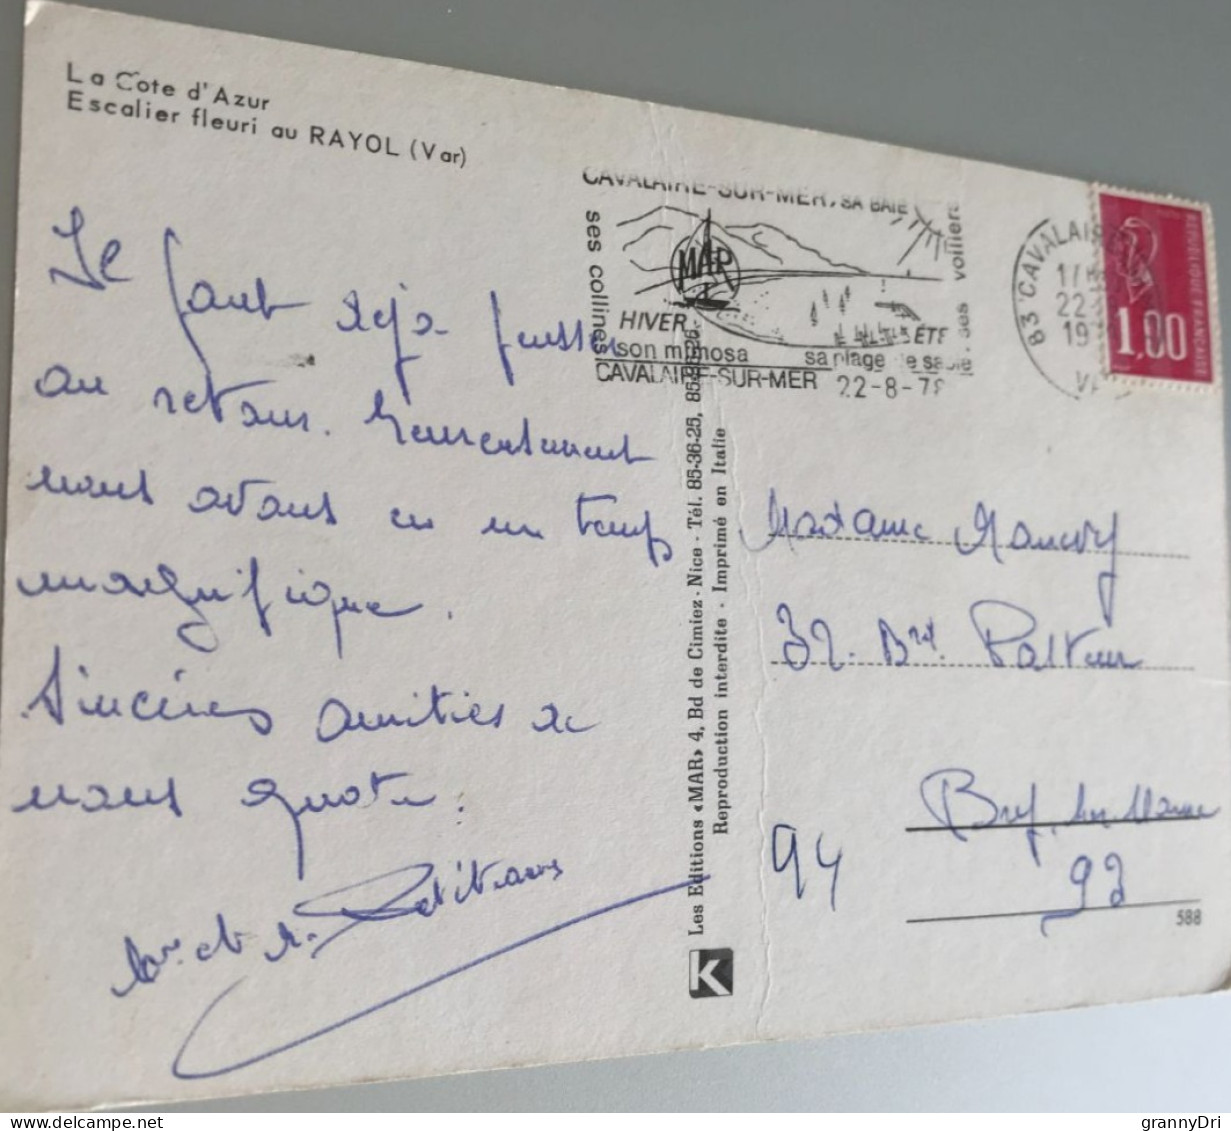 La Côte d'Azur
Escalier fleuri au RAYOL (Var)
CAVALAIRE-SUR-MER, SA BAIE
ses collines
ses voiliers
MAR
HIVER
son mimosa
ÉTÉ
sa plage de sable
CAVALAIRE-SUR-MER
22-8-78
83 CAVALAIRE
REPUBLIQUE FRANÇAISE
1,00
Il faut déjà penser
au retour. Heureusement
nous avons eu un temps
magnifique.
Sincères amitiés de
nous quatre.
Madame
32. Bd. Pasteur
Bry sur Marne
94
588
Les Editions «MAR» 4, Bd de Cimiez - Nice - Tél. 85-36-25, 85-36-26
Reproduction interdite - Imprimé en Italie
K
grannyDri